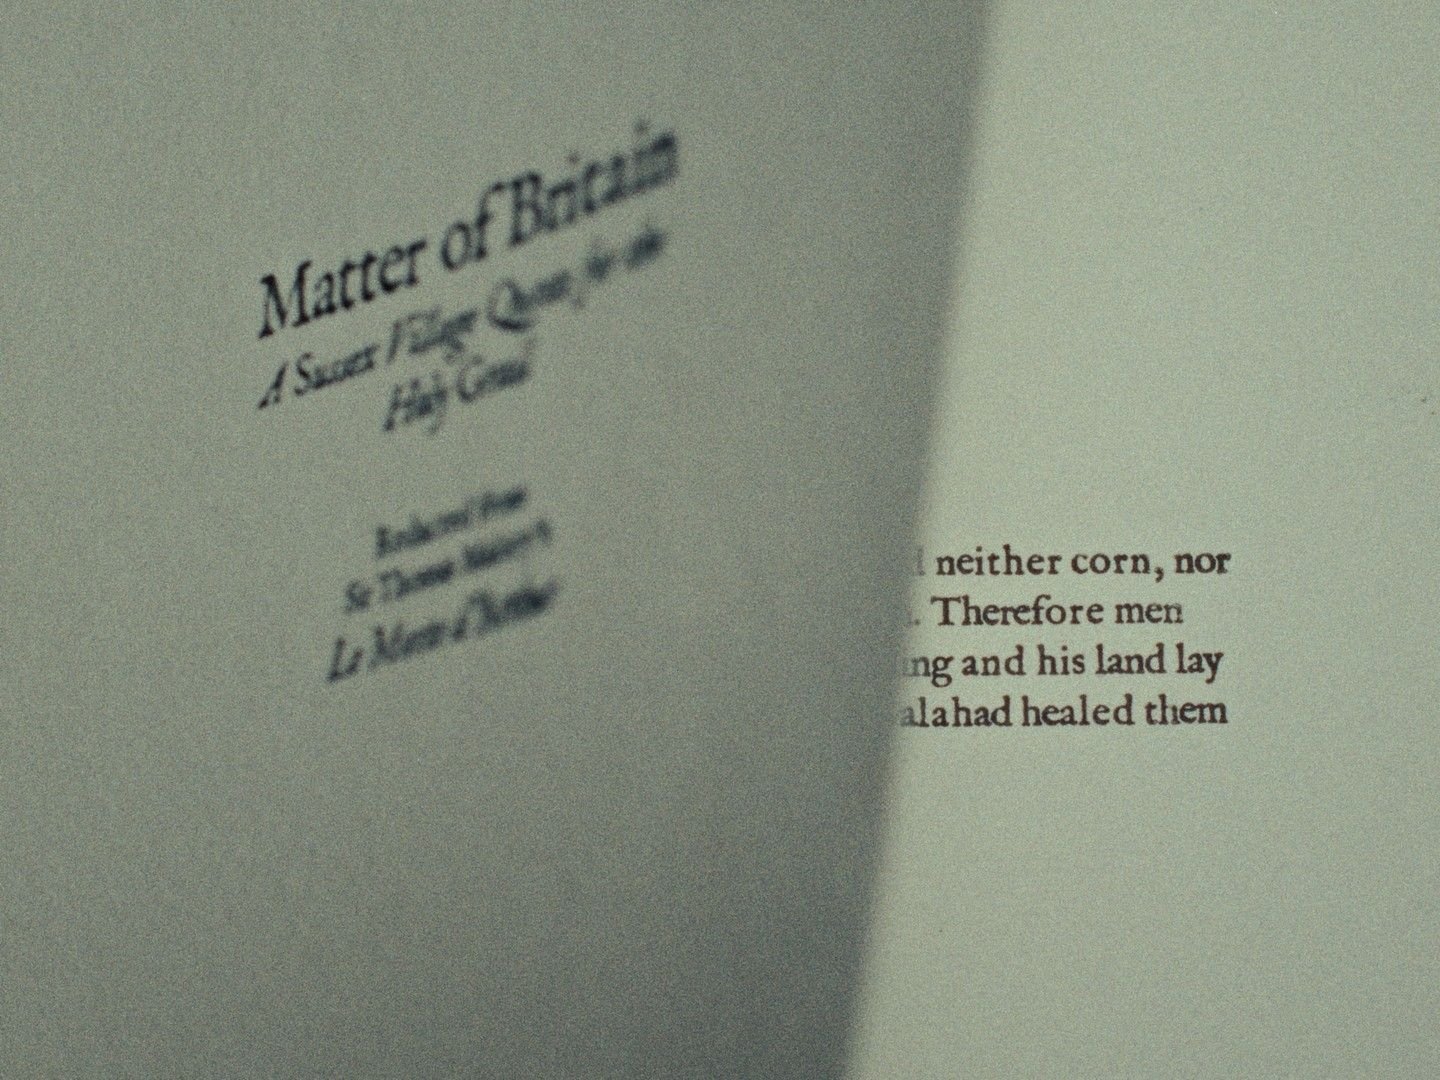 Matter of Britain
A Sussex Village Quests for the
Holy Graal
Redacted from
Sir Thomas Malory's
Le Morte d'Arthur
neither corn, nor
. Therefore men
ing and his land lay
alahad healed them